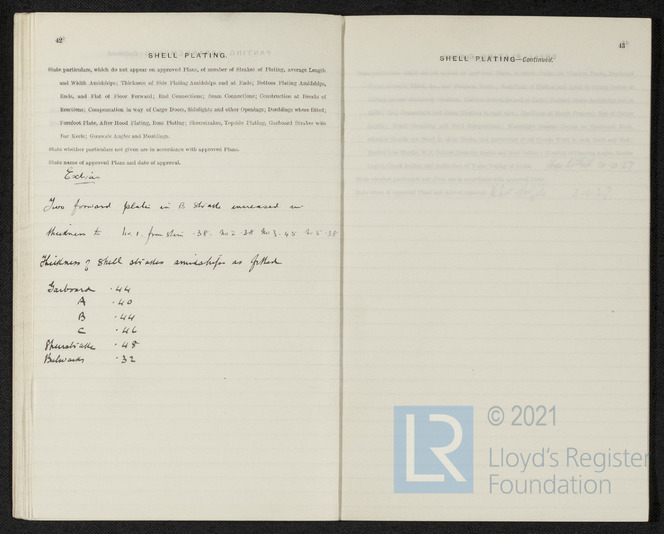 42
SHELL PLATING.
State particulars, which do not appear on approved Plans, of number of Strakes of Plating, average Length
and Width Amidships; Thickness of Side Plating Amidships and at Ends; Bottom Plating Amidships,
Ends, and Flat of Floor Forward; End Connections; Seam Connections; Construction at Breaks of
Erections; Compensation in way of Cargo Doors, Sidelights and other Openings; Doublings where fitted;
Forefoot Plate, After Hood Plating, Boss Plating; Sheerstrakes, Topside Plating, Garboard Strakes with
Bar Keels; Gunwale Angles and Mouldings.
State whether particulars not given are in accordance with approved Plans.
State name of approved Plans and date of approval.
Two forward plates in B strake increased in
thickness to No 1. from stem .38. No 2 .38 No 3 .45
Thickness of shell strakes amidships as fitted
Garboard .44
A .40
B .44
C .46
Sheerstrake .48
Bulwarks .32
43
SHELL PLATING—Continued.
LR
© 2021
Lloyd's Register
Foundation